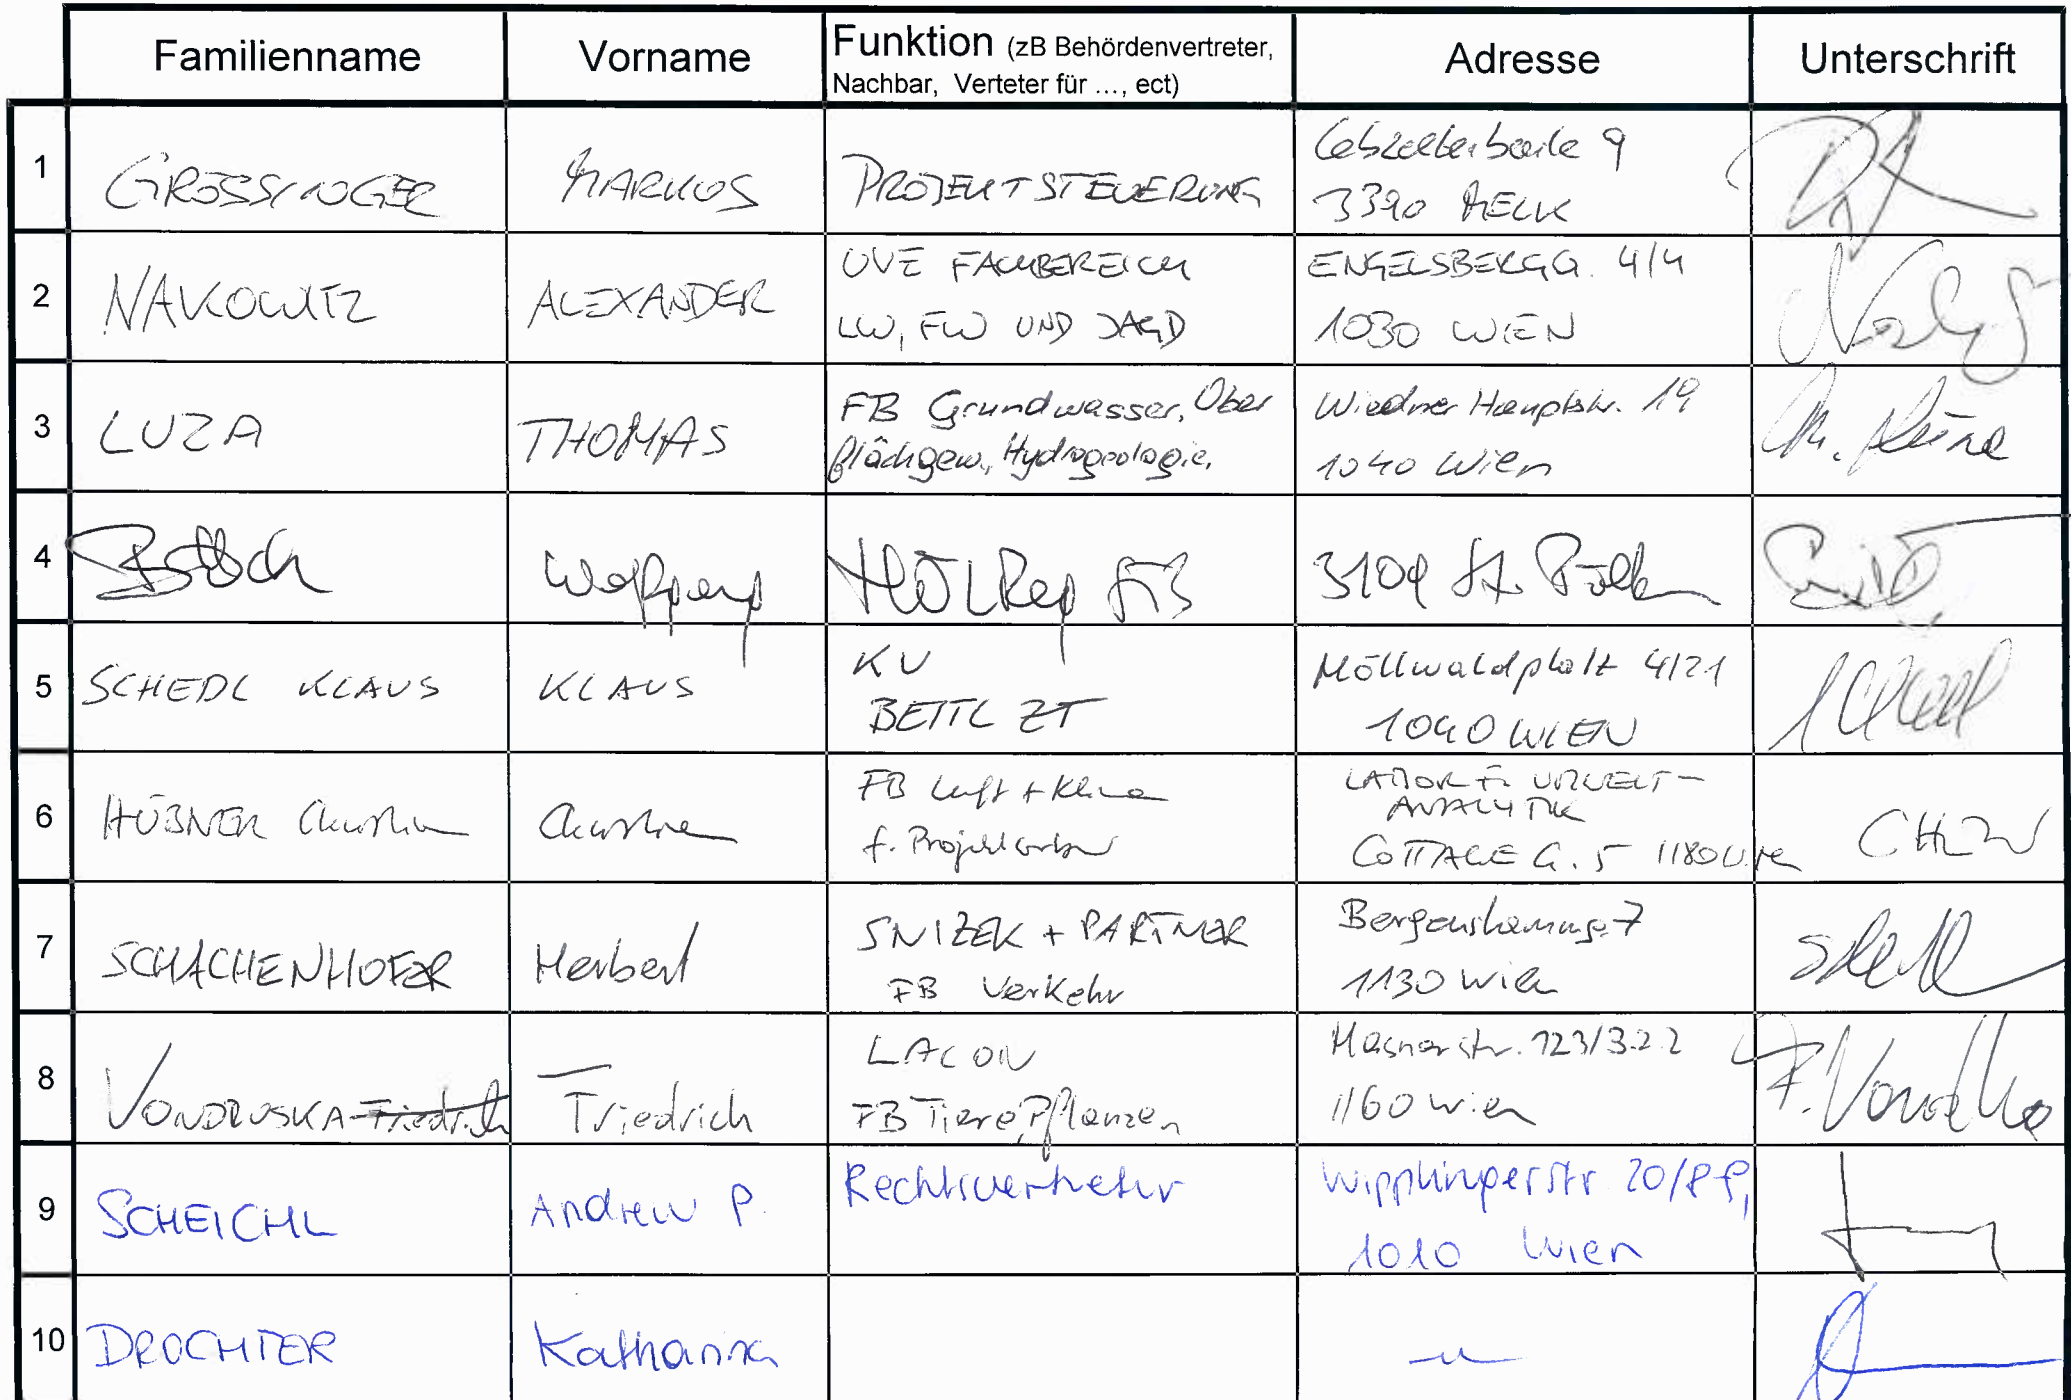 Familienname Vorname Funktion (zB Behördenvertreter, Nachbar, Verteter für ..., ect) Adresse Unterschrift
1 GRÖSSINGER MARKUS PROJEKTSTEUERUNG
9
3390 MELK
2 NAKOWITZ ALEXANDER UVE FACHBEREICH
LW, FW UND JAGD
ENGELSBERGG. 4/4
1030 WIEN
3 LUZA THOMAS FB Grundwasser, Ober
flächgew., Hydrogeologie,
Wiedner Hauptstr. 19
1040 Wien
4 Wolfgang 3109 St. Pölten
5 SCHEDL KLAUS KLAUS KV
BETTL ZT
Möllwaldplatz 4/21
1040 WIEN
6 HÜBNER Christine Christine FB Luft + Klima
f. Projektwerber
LABOR F. UMWELT-
ANALYTIK
COTTAGE G. 5 1180 Wien
7 SCHACHENHOFER Herbert SNIZEK + PARTNER
FB Verkehr
7
1130 Wien
8 VONDRUSKA Friedrich Friedrich LACON
FB Tiere, Pflanzen
Hasnerstr. 123/3.2.2
1160 Wien
F. Vondruska
9 SCHEICHL Andrew P. Rechtsvertreter
Wipplingerstr 20/8-9,
1010 Wien
10 DROCHTER Katharina -"-